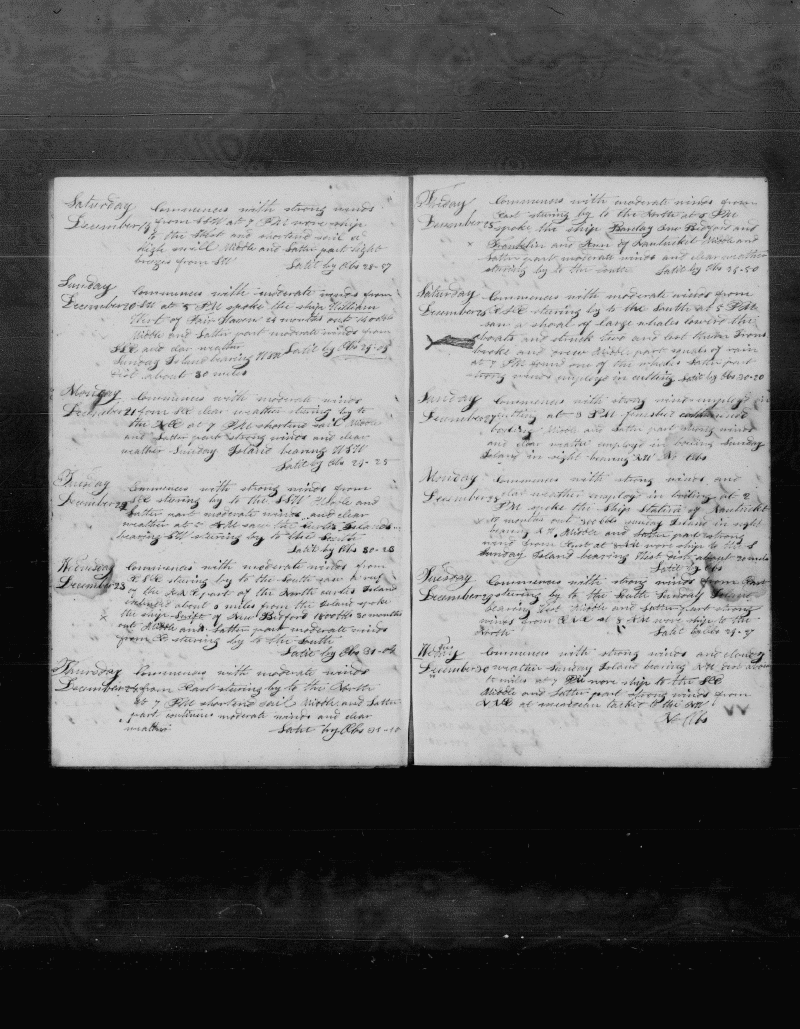 Saturday Commences with strong winds
December 19 from SSW at 7 PM wore ship
to the West and shortend sail a
high swell Middle and Latter part light
breezes from SW Latit by Obs 28-57
Sunday Commences with moderate winds from
December 20 SW at PM spoke the ship William
Wirt of Fair Haven months out
Middle and Latter part moderate winds from
SSE and clear weather Latit by Obs 29-
Sunday Island bearing WSW
dist about 30 miles
Monday Commences with moderate winds
December 21 from SE clear weather stering by to
the NE at 7 PM shortend sail Middle
and Latter part strong winds and clear
weather Sunday Island bearing WSW
Latit by Obs 29-25
Tuesday Commences with strong winds from
December 22 SE stering by to the SSW Middle and
Latter part moderate winds and clear
weather at 5 AM saw the Islands
bearing SW stering by to the South
Latit by Obs 30-23
Wensday Commences with moderate winds from
December 23 ESE stering by to the South saw a
of the part of the North Island
about 2 miles from the Island spoke
X the ship Swift of New Bidford 30 months
out Middle and Latter part moderate winds
from SE stering by to the South
Latit by Obs 31-04
Thursday Commences with moderate winds
December 24 from East stering by to the North
at 7 PM shortend sail Middle and Latter
part continues moderate winds and clear
weather Latit by Obs -10
Friday Commences with moderate winds from
December 25 East stering by to the North at PM
spoke the ship New Bidford and
Franklin and of Nantucket Middle and
Latter part moderate winds and clear weather
stering by to the South Latit by Obs 29-50
Saturday Commences with moderate winds from
December 26 ESE stering by to the South at 5 PM
saw a shoal of large whales lowerd the
boats and struck two and lost Irons
broke and Middle part squals of rain
at 7 PM found one of the whales Latter part
strong winds employd in cutting Latit by Obs 30-20
Sunday Commences with strong winds employd in
December 27 cutting at 3 PM finished commenced
boiling Middle and Latter part strong winds
and clear weather employd in boiling Sunday
Island in sight bearing NW No Obs
Monday Commences with strong winds and
December 28 clear weather employd in boiling at 2
PM spoke the Ship Statira of Nantucket
months out Sunday Island in sight
bearing Middle and Latter part strong
wind from East at AM wore ship to the S
Sunday Island bearing West dist about 20 miles
Latit by Obs
Tuesday Commences with strong winds from East
December 29 stering by to the South Sunday Island
bearing West Middle and Latter part strong
winds from ENE at 8 AM wore ship to the
North Latit by Obs 29-37
Wensday Commences with strong winds and cloudy
December 30 weather Sunday Island bearing NW dist about
10 miles at 7 PM wore ship to the SE
Middle and Latter part strong winds from
NNE at meridian tacked to the NW
No Obs